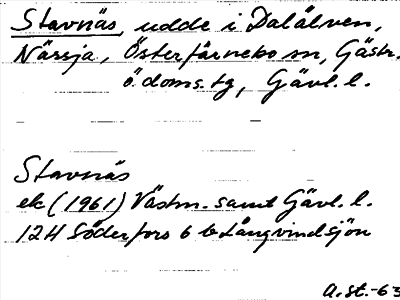 Stavnäs, udde i Dalälven,
Närsja, Österfärnebo sn, Gästr.
ö. doms.tg, Gävl. l.
Stavnäs
ek (1961) Västm. samt Gävl. l.
12H Söderfors 6 b Långvindsjön
a.st.-63